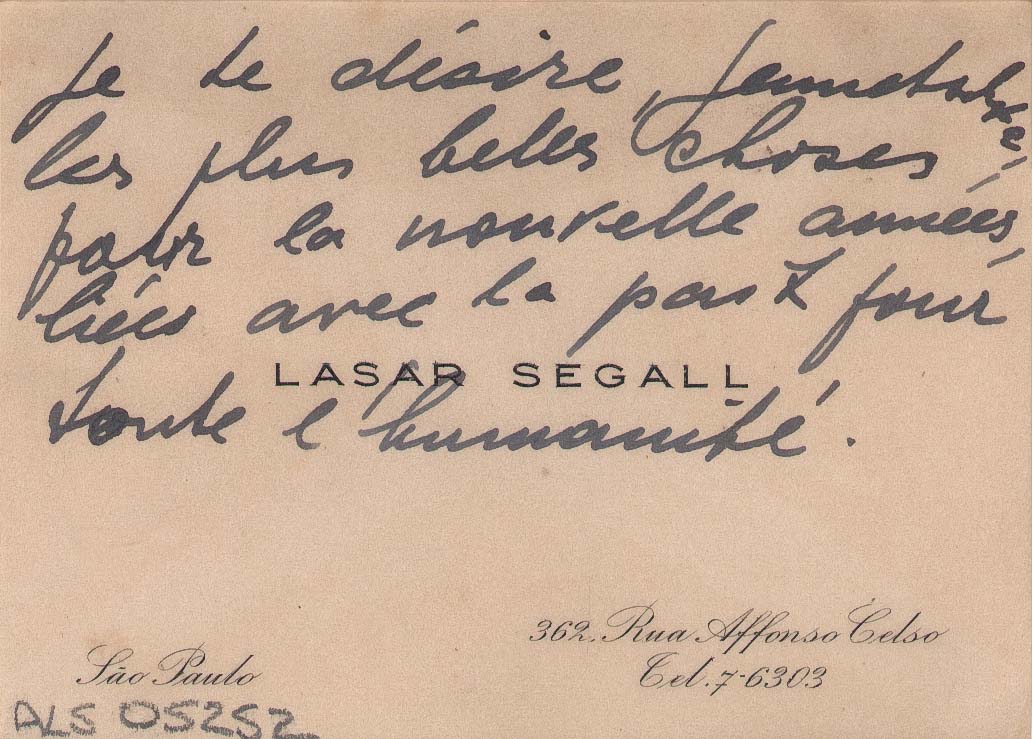 Je te désire,
les plus belles choses
pour la nouvelle années,
liées avec la paix pour
LASAR SEGALL
toute l humanité.
362. Rua Affonso Celso
São Paulo
Tel. 7-6303
ALS 05252